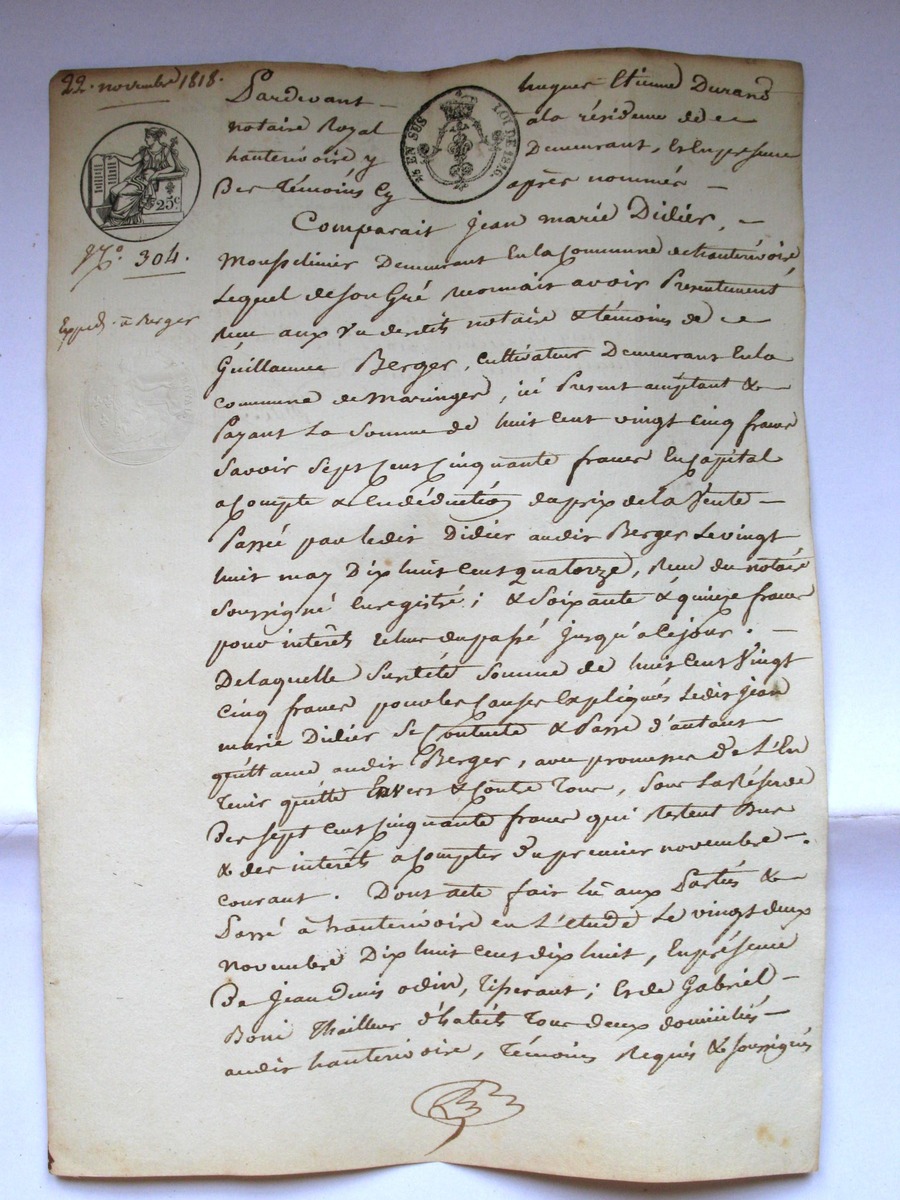 22. novembre 1818.
Pardevant hugues Etienne Durand
notaire Royal à la résidence de ce
hauterivoire y Demeurant, & En presence
Des Témoins Cy après nommés
25 EN SUS LOI DE 1816.
25c
Comparait Jean marie Didier,
No. 304.
Demeurant En la Commune de hauterivoire
Lequel de son Gré reconnait avoir Presentement
Expéd. à Berger
reçu aux Vu desdits notaire & témoins de ce
Guillaume Berger, cultivateur Demeurant En la
commune de Maringes, ici Present acceptant &
Payant La Somme de huit cent vingt cinq francs
Savoir Sept Cent Cinquante francs En Capital
a Compte & En déduction du prix de la Vente
Passée par ledit Didier audit Berger Le vingt
huit may Dix huit Cent quatorze, reçue du notaire
Soussigné Enregistré; & Soixante & quinze francs
pour interêts echus du passé Jusqu'à ce jour.
De laquelle Susdite Somme de huit Cent Vingt
Cinq francs pour les Causes Expliqués Ledit Jean
marie Didier Se Contente & Passe d'autant
quittance audit Berger, avec promesse de L'En
Tenir quitte Envers & Contre Tous, Sous La Réserve
Des Sept Cent Cinquante francs qui Restent Dus
& des interêts a Compter du premier novembre
courant. Dont acte fait lû aux Parties &
Passé à hauterivoire en L'étude Le vingt deux
novembre Dix huit Cent dix huit, En présence
De Jean Denis odin, Tisserant; Et de Gabriel
Boni Thailleur d'habits Tous deux domiciliés
audit hauterivoire, Témoins Requis & soussignés